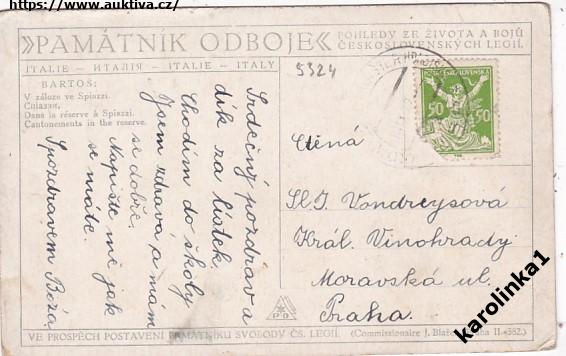 https://www.auktiva.cz/
»PAMÁTNÍK ODBOJE«
POHLEDY ZE ŽIVOTA A BOJŮ
ČESKOSLOVENSKÝCH LEGIÍ.
ITALIE — ИТАЛІЯ — ITALIE — ITALY
BARTOŠ:
V záloze ve Spiazzi.
Dans la réserve à Spiazzi.
Cantonements in the reserve.
5324
Srdečný pozdrav a
dík za lístek.
Chodím do školy
Jsem zdráva a mám
se dobře.
Napište mě jak
se máte.
S pozdravem Běža
POŠTA ČESKOSLOVENSKÁ
50 50
Ctěná
Sl. J. Vondreysová
Král. Vinohrady
Moravská ul.
Praha.
VE PROSPĚCH POSTAVENÍ PAMÁTNÍKU SVOBODY ČS. LEGIÍ.
(Commissionaire J. Praha II.-582.)
karolinka1